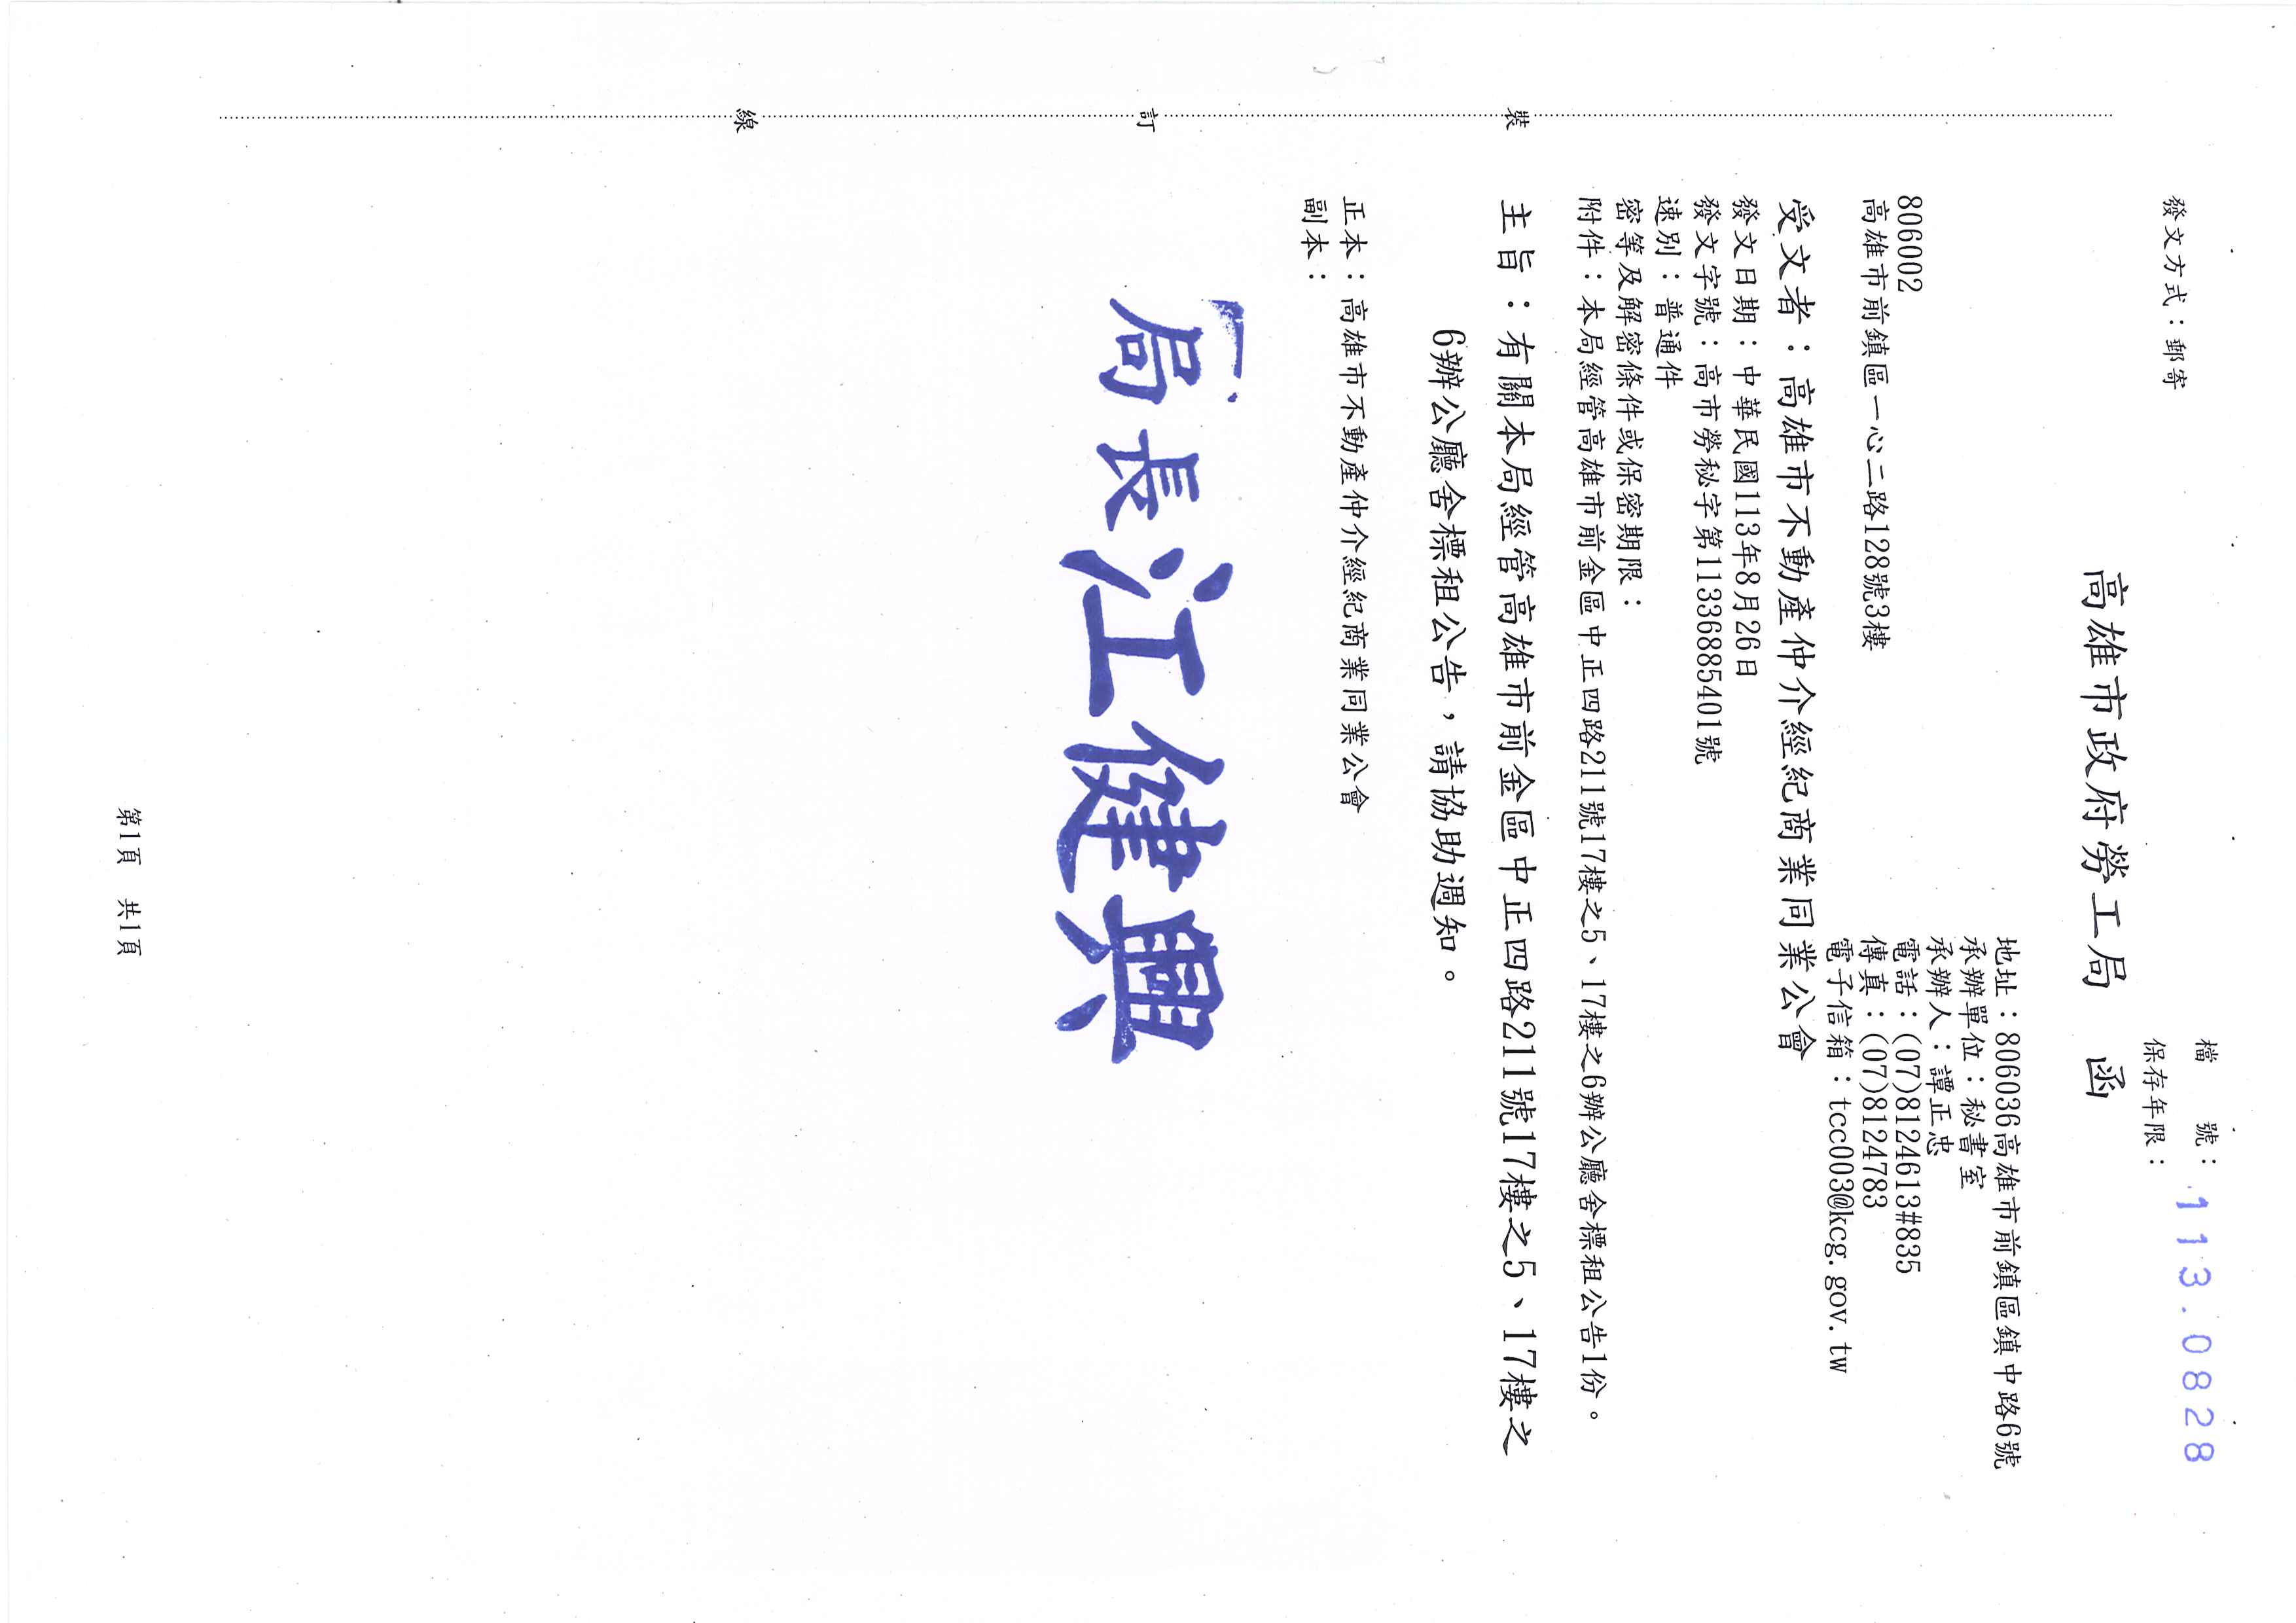 檔　　號：
保存年限：
113.0828
發文方式：郵寄
高雄市政府勞工局　函
地址：806036高雄市前鎮區鎮中路6號
承辦單位：秘書室
承辦人：譚正忠
電話：(07)8124613#835
傳真：(07)8124783
電子信箱：tcc003@kcg.gov.tw
806002
高雄市前鎮區一心二路128號3樓
受文者：高雄市不動產仲介經紀商業同業公會
發文日期：中華民國113年8月26日
發文字號：高市勞秘字第11336885401號
速別：普通件
密等及解密條件或保密期限：
附件：本局經管高雄市前金區中正四路211號17樓之5、17樓之6辦公廳舍標租公告1份。
主旨：有關本局經管高雄市前金區中正四路211號17樓之5、17樓之
6辦公廳舍標租公告，請協助週知。
正本：高雄市不動產仲介經紀商業同業公會
副本：
局長江健興
裝
訂
線
第1頁　共1頁